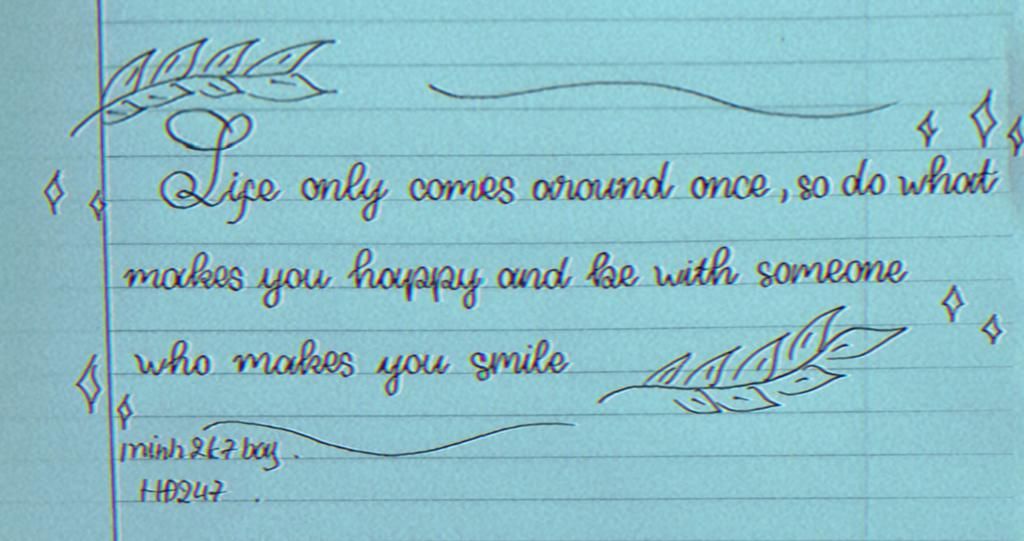 Life only comes around once, so do what
makes you happy and be with someone
who makes you smile
minh2k7bay.
HĐ247.